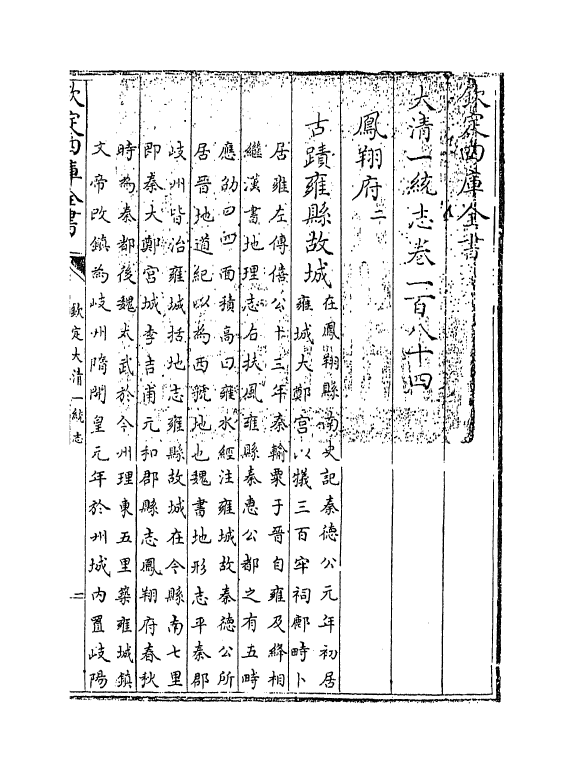 欽定四庫全書
大清一統志卷一百八十四
鳳翔府二
古蹟雍縣故城
在鳳翔縣南史記秦德公元年初居
雍城大鄭宮以犧三百牢祠鄜畤卜
居雍左傳僖公十三年秦輸粟于晉自雍及絳相
繼漢書地理志右扶風雍縣秦惠公都之有五畤
應劭曰四面積高曰雍水經注雍城故秦德公所
居晉地道紀以為西虢地也魏書地形志平秦郡
岐州皆治雍城括地志雍縣故城在今縣南七里
即秦大鄭宮城李吉甫元和郡縣志鳳翔府春秋
時為秦都後魏太武於今州理東五里築雍城鎮
文帝改鎮為岐州隋開皇元年於州城內置岐陽
欽定四庫全書
欽定大清一統志